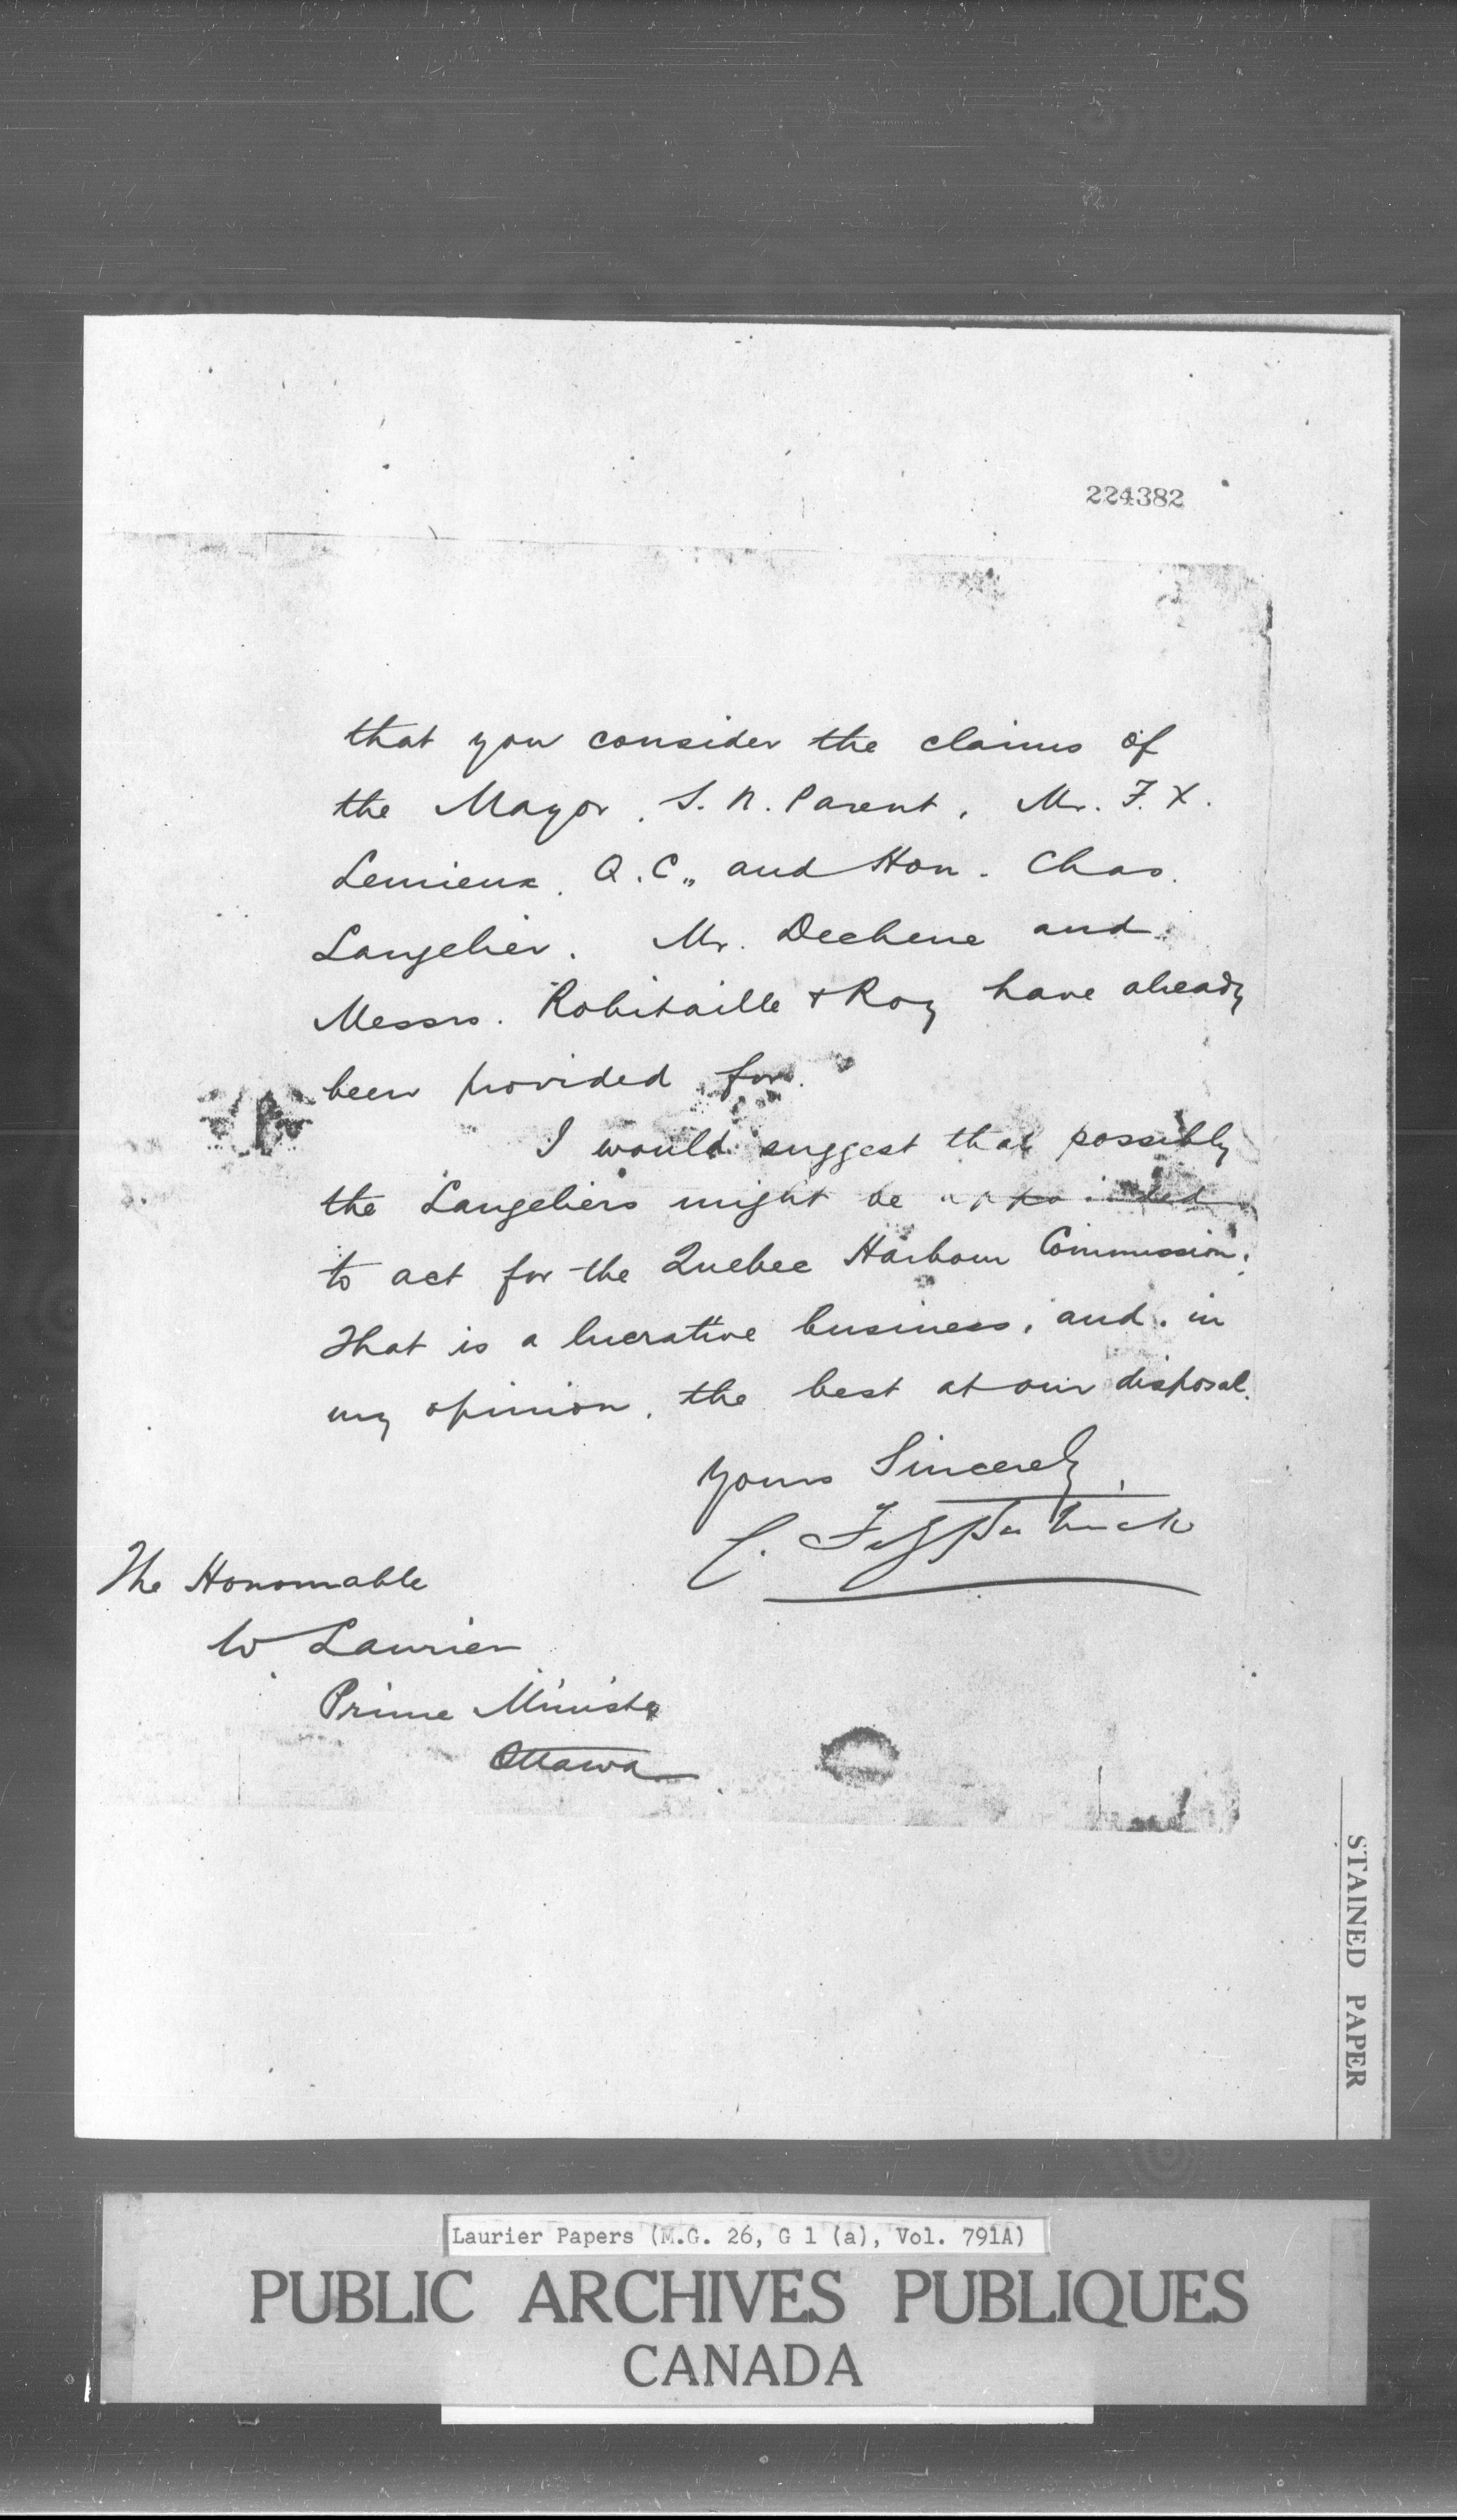 224382
that you consider the claims of
the Mayor, S. N. Parent, Mr. F. X.
Lemieux, Q.C., and Hon. Chas.
Langelier. Mr. Dechene and
Messrs. Robitaille & Roy have already
been provided for.
I would suggest that possibly
the Langeliers might be appointed
to act for the Quebec Harbour Commission.
That is a lucrative business, and, in
my opinion, the best at our disposal.
Yours Sincerely,
C. Fitzpatrick
The Honourable
W Laurier
Prime Minister
Ottawa
STAINED PAPER
Laurier Papers (M.G. 26, G 1 (a), Vol. 791A)
PUBLIC ARCHIVES PUBLIQUES
CANADA